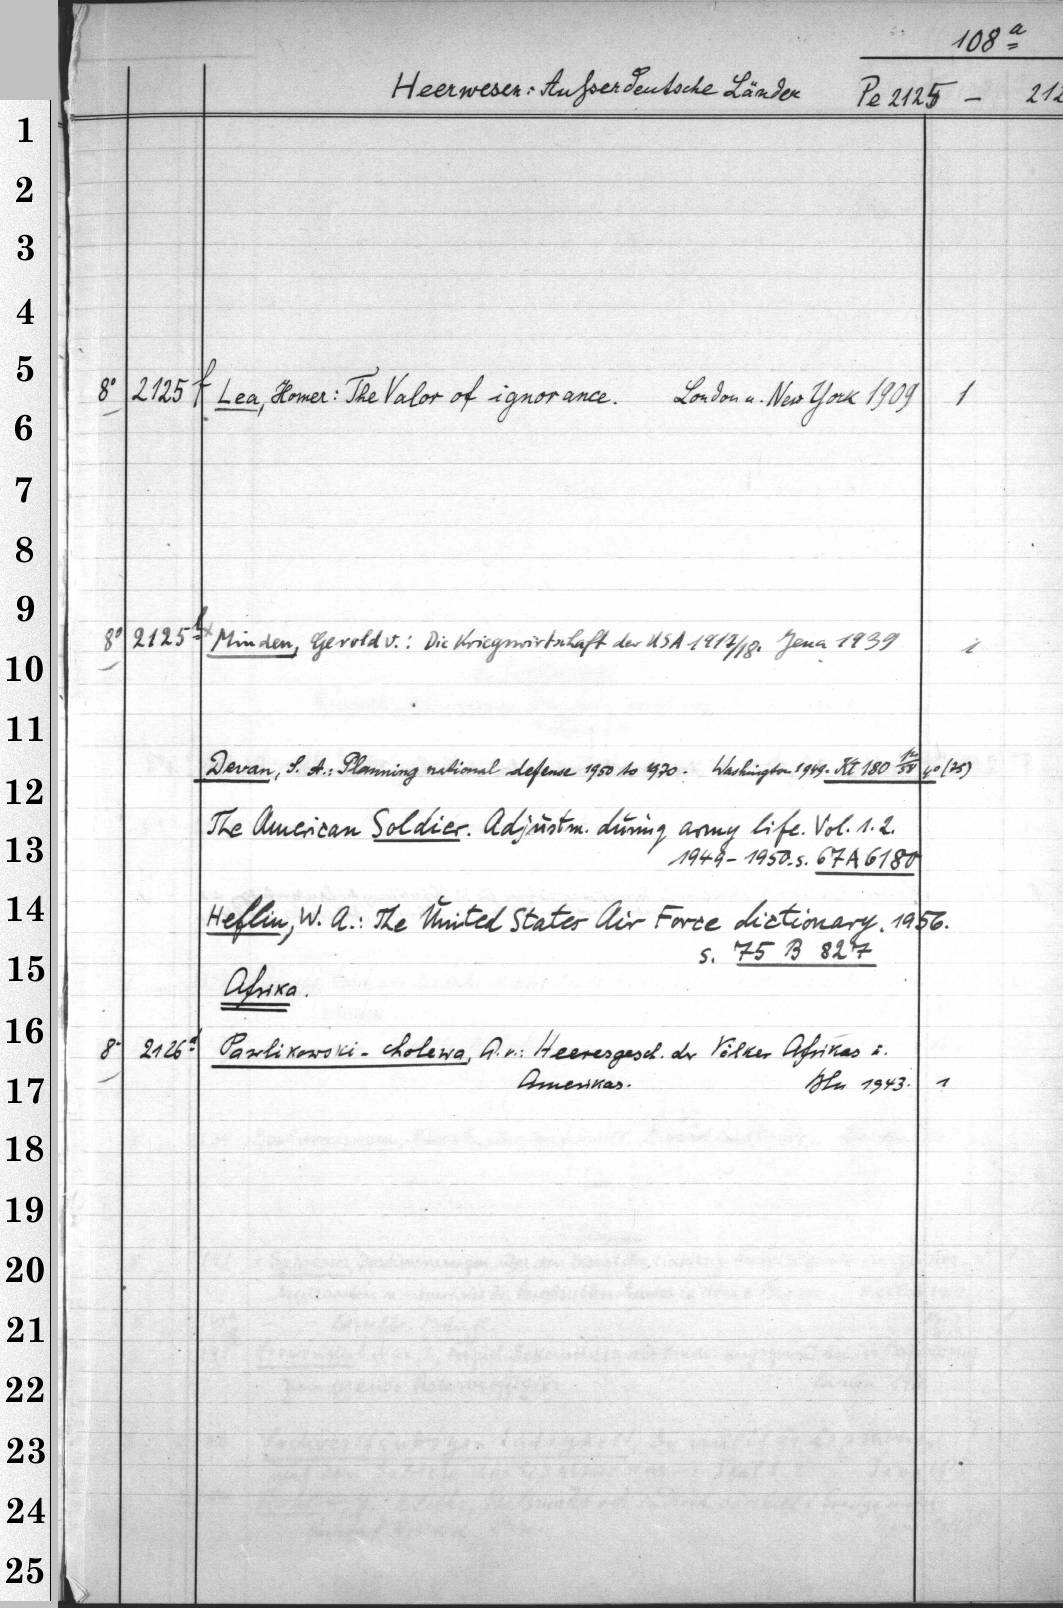 108a
Heerwesen: Außerdeutsche Länder Pe 2125 - 212
1
2
3
4
5
8° 2125 f Lea, Homer: The Valor of ignorance. London u. New York 1909 1
6
7
8
9
8° 2125 Minden, Gerold v.: Die Kriegswirtschaft der USA 1917/18. Jena 1939 1
10
11
Devan, S. A.: Planning national defense 1950 to 1970. Washington 1949. Kt 180 4° (75)
12
The American Soldier. Adjustm. during army life. Vol. 1. 2.
13
1949-1950. s. 67 A 6180
14
Heflin, W. A.: The United States Air Force dictionary. 1956.
s. 75 B 827
15
Afrika.
16
8° 2126 Pawlikowski-Cholewa, A. v.: Heeresgesch. der Völker Afrikas u.
17
Amerikas. Bln 1943. 1
18
19
20
21
22
23
24
25